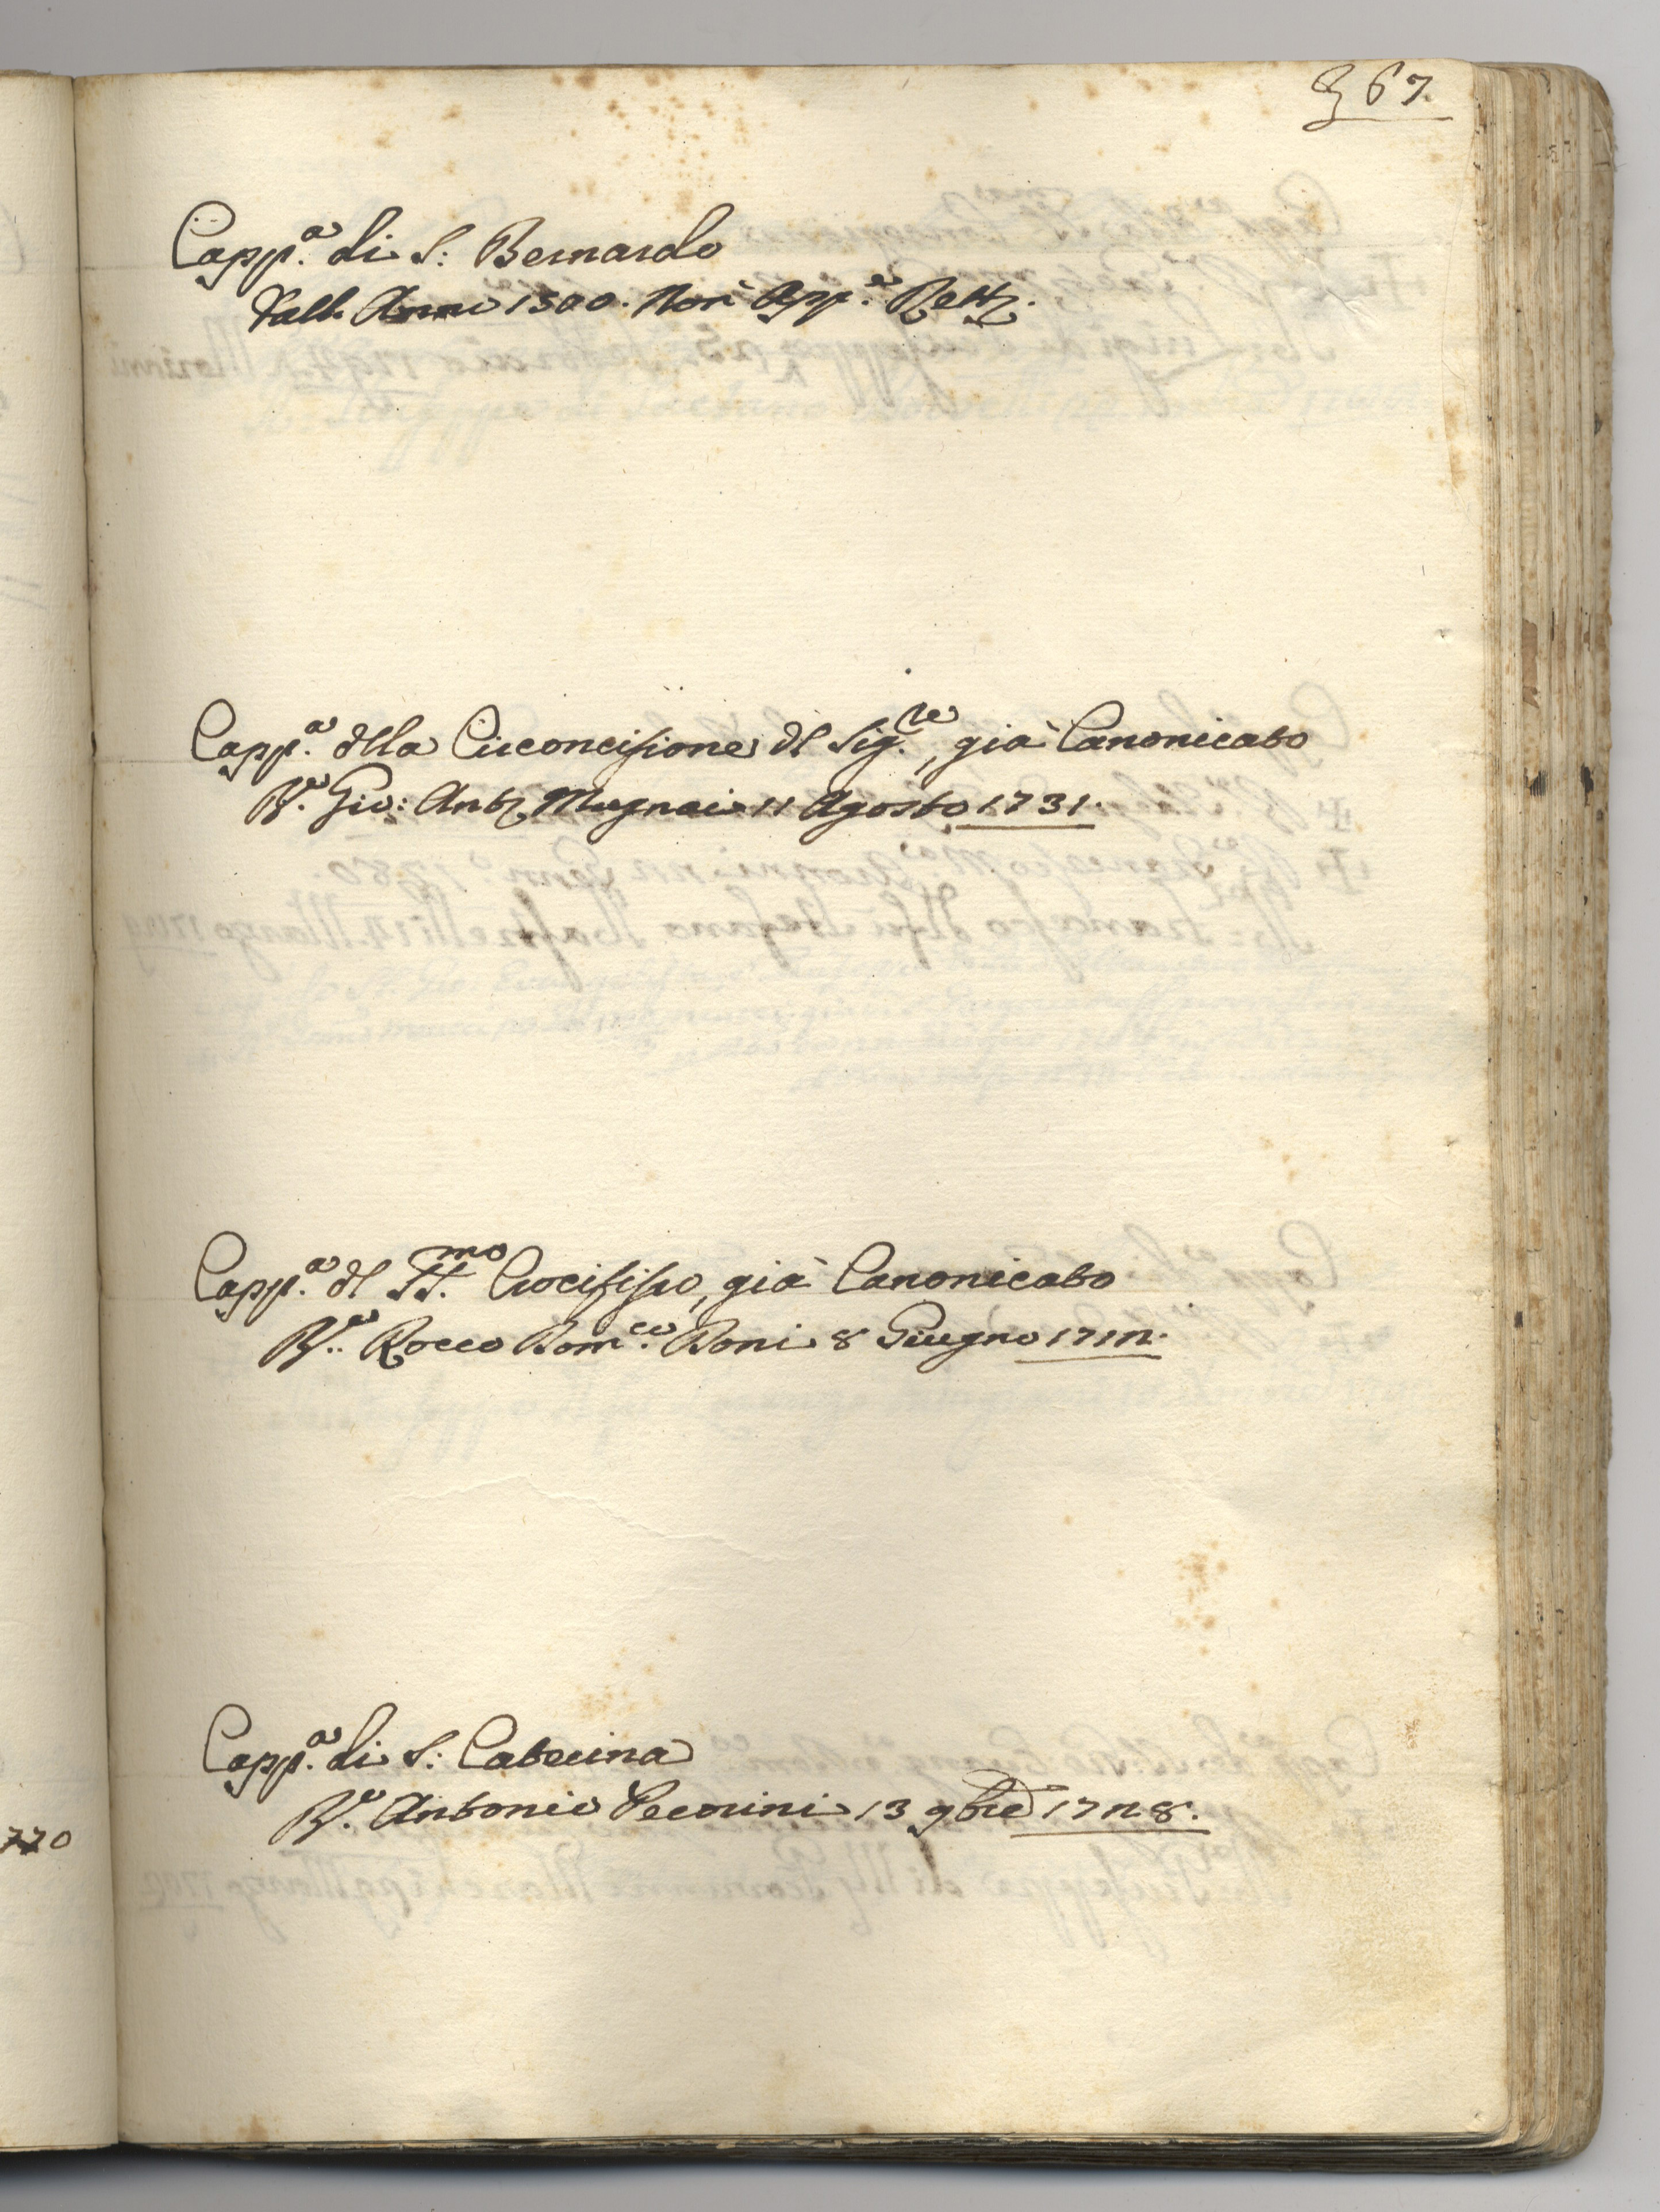 367.
Capp.a di S: Bernardo
Dall' Anno 1500. Non App.e Rett.
Capp.a della Circoncisione del Sig.re, già Canonicato
R.e Gio: Ant. Mugnai 11 Agosto 1731.
Capp.a del SS.mo Crocifisso, già Canonicato
R.e Rocco Dom.co Boni 8 Giugno 1712.
Capp.a di S: Caterina
R.e Antonio Pecorini 13 9bre 1728.
770